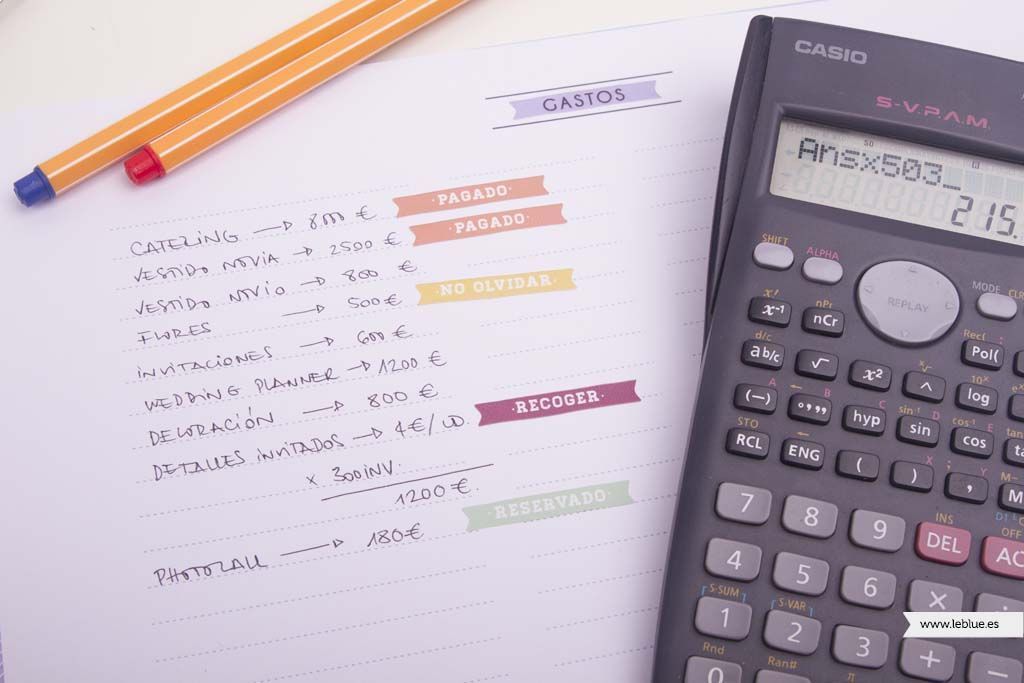 GASTOS
CATERING → 8000 € PAGADO
VESTIDO NOVIA → 2500 € PAGADO
VESTIDO NOVIO → 800 €
FLORES → 500 € NO OLVIDAR
INVITACIONES → 600 €
WEDDING PLANNER → 1200 €
DECORACIÓN → 800 €
DETALLES INVITADOS → 4€/UD. ·RECOGER·
x 300 INV.
1200 €
PHOTOCALL → 180€ RESERVADO
CASIO
S-V.P.A.M.
Ans×503_
215.
SHIFT ALPHA
REPLAY
MODE CLR
x! nPr
x⁻¹ nCr
Rec( :
Pol(
d/c
ab/c √ x² ^ log
(−) °,,, hyp sin cos
sin⁻¹ D cos⁻¹ E
STO
RCL ENG ( ) , M
INS OFF
7 8 9 DEL AC
4 5 6 ×
S-SUM S-VAR
1 2 3 + −
Rnd Ran# π
0
www.leblue.es